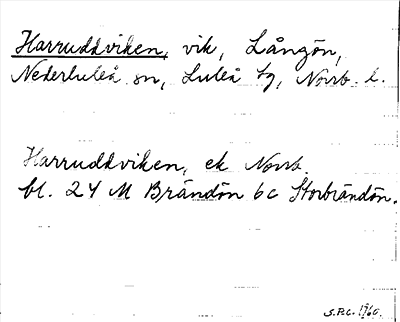 Harruddviken, vik, Långön,
Nederluleå sn, Luleå tg, Norrb. l.
Harruddviken, ek Norrb.
bl. 24 M Brändön 6c Storbrändön.
S.P.C. 1960.